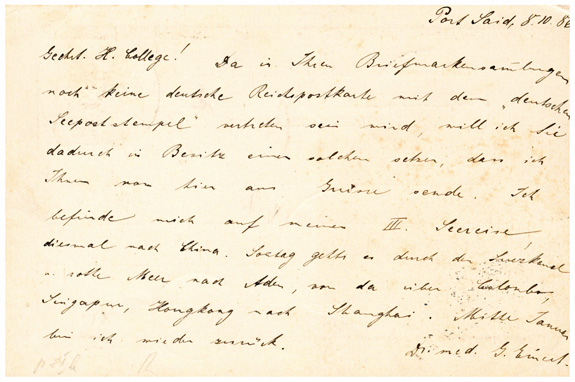 Port Said, 8.10.86
Geehrt. H. College! Da in Ihren Briefmarkensammlungen
noch keine deutsche Reichspostkarte mit dem „deutschen
Seepoststempel" vertreten sein wird, will ich Sie
dadurch in Besitz einer solchen setzen, dass ich
Ihnen von hier aus Grüsse sende. Ich
befinde mich auf meiner III. Seereise!
diesmal nach China. Sostag gehts es durch den Suezkanal
u. rothe Meer nach Aden, von da über Colombo,
Singapur, Hongkong nach Shanghai. Mitte Januar
bin ich wieder zurück.
Dr. med. G.